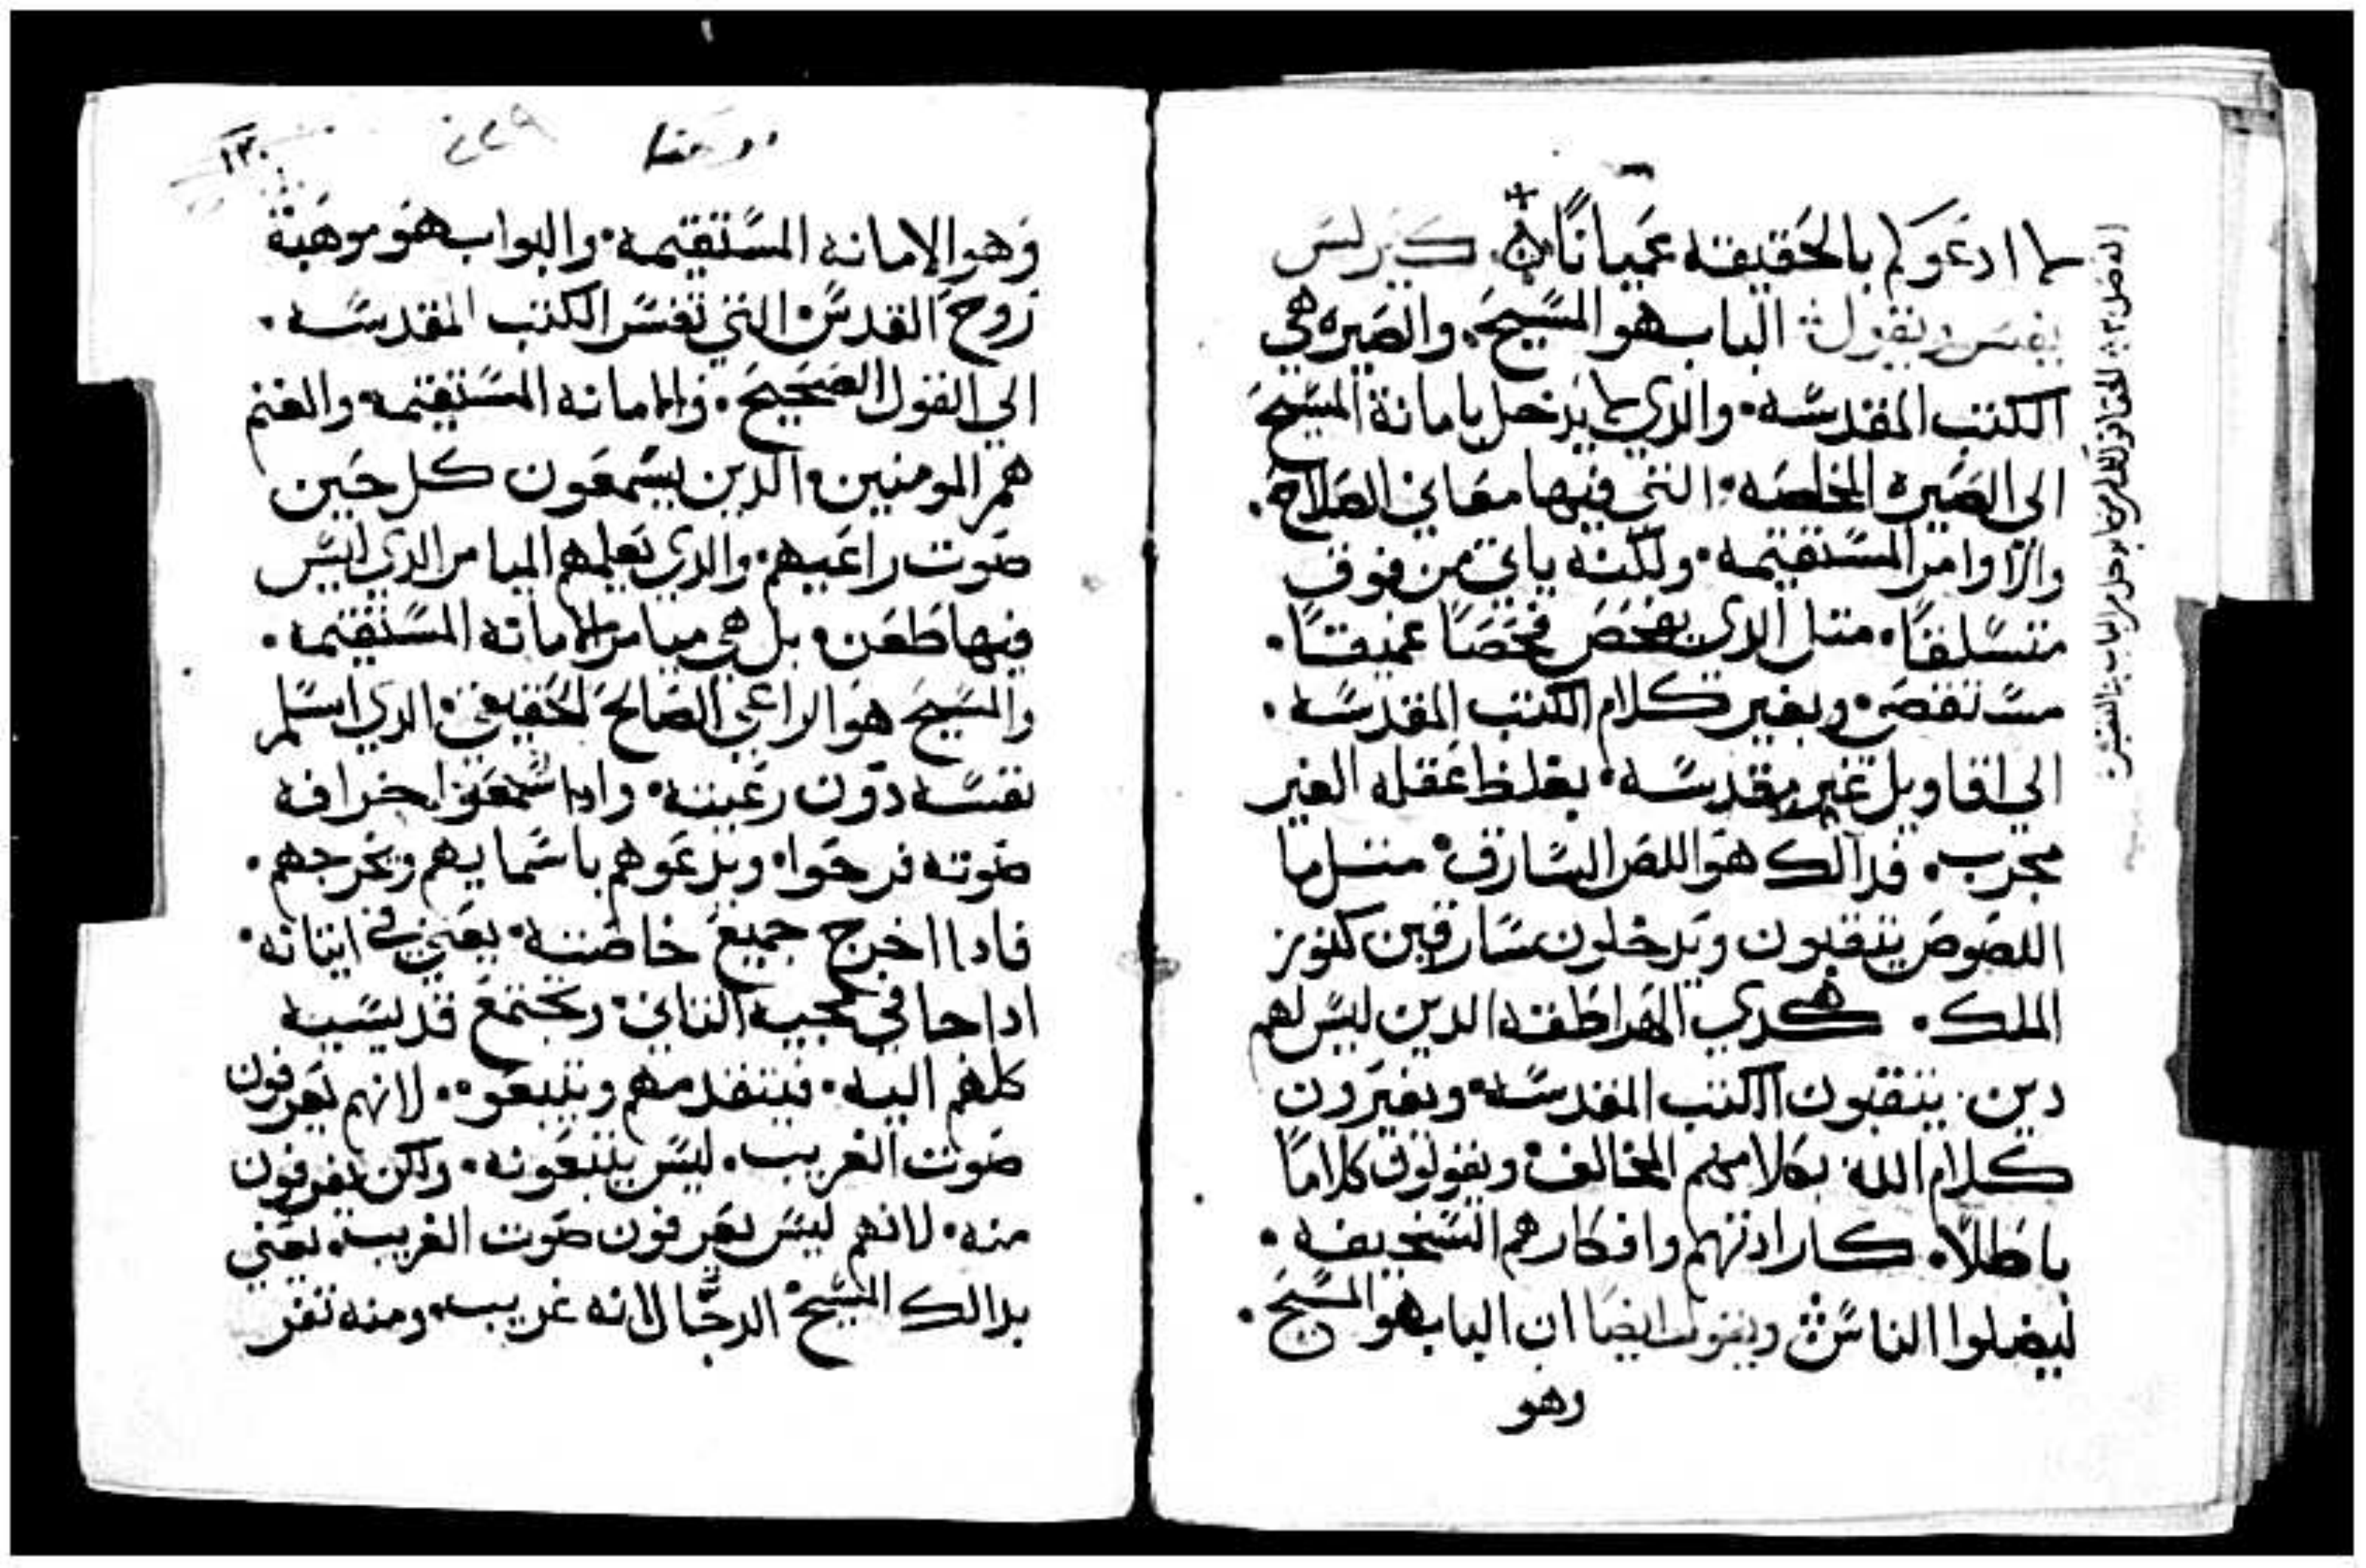 لا ادعوكم بالحقيقه عميانًا كيرلس
يفسر ويقول الباب هو المسيح. والصيره هي
الكتب المقدسه. والذي لا يدخل بامانة المسيح
الي الصيره المخلصه. التي فيها معاني الصلاح.
والاوامر المستقيمه. ولكنه ياتي من فوق
متسلقًا. متل الذي يفحص فحصًا عميقًا.
مستقصي. ويغير كلام الكتب المقدسه.
الي اقاويل غير مقدسه. بغلظ عقله الغير
مجرب. فدالك هو اللص السارق. متل ما
اللصوص ينقبون ويدخلون سارقين كنوز
الملك. هكدي الهراطقه الدين ليس لهم
دين. ينقبون الكتب المقدسه. ويغيرون
كلام الله بكلامهم المخالف. ويقولون كلامًا
باطلًا. كارادتهم وافكارهم السخيفه.
ليضلوا الناس. ويقول ايضا ان الباب هو المسيح.
وهو
يوحنا
١٣٠
وهو الامانه المستقيمه. والبواب هو موهبة
روح القدس. التي تفسر الكتب المقدسه.
الي القول الصحيح. والامانه المستقيمه. والغنم
هم المومنين. الدين يسمعون كل حين
صوت راعيهم. والدي يعلمهم الميامر الدي ليس
فيها طعن. بل هي ميامر الامانه المستقيمه.
والمسيح هو الراعي الصالح الحقيقي. الدي اسلم
نفسه دون رعيته. وادا سمعوا خرافه
صوته فرحوا. ويدعوهم باسمايهم ويخرجهم.
فادا اخرج جميع خاصته. يعني في اتيانه.
ادا جا في مجيه التاني. وتجتمع قديسيه
كلهم اليه. فيتقدمهم ويتبعوه. لانهم يعرفون
صوت الغريب. ليس يتبعونه. ولكن يفرون
منه. لانهم ليس يعرفون صوت الغريب. يعني
بدالك المسيح الدجال لانه غريب. ومنه تفر